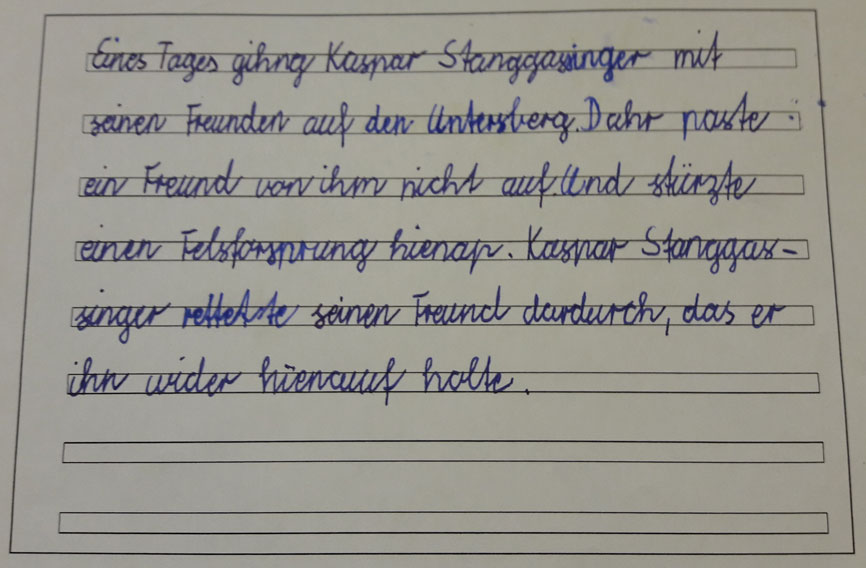 Eines Tages gihng Kaspar Stanggassinger mit
seinen Freunden auf den Untersberg. Dahr paste
ein Freund von ihm nicht auf. Und stürzte
einen Felsforsprung hienap. Kaspar Stanggas-
singer rettette seinen Freund dardurch, das er
ihn wider hienauf holte.